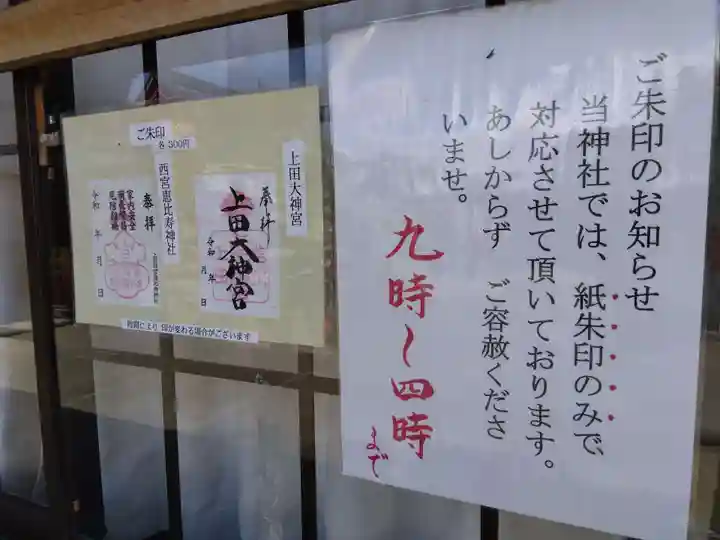 ご朱印のお知らせ
当神社では、紙朱印のみで、
対応させて頂いております。
あしからず ご容赦くださ
いませ。
九時～四時
まで
ご朱印
各 300円
上田大神宮
奉拝
上田大神宮
令和 年 月 日
西宮恵比寿神社
奉拝
家内安全
令和 年 月 日
時期により 印が変わる場合がございます